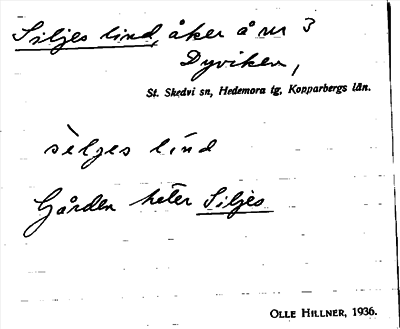 Siljes lind, åker å nr 3
Dyviken,
St. Skedvi sn, Hedemora tg, Kopparbergs län.
sèlges línd
Gården heter Siljes
OLLE HILLNER, 1936.